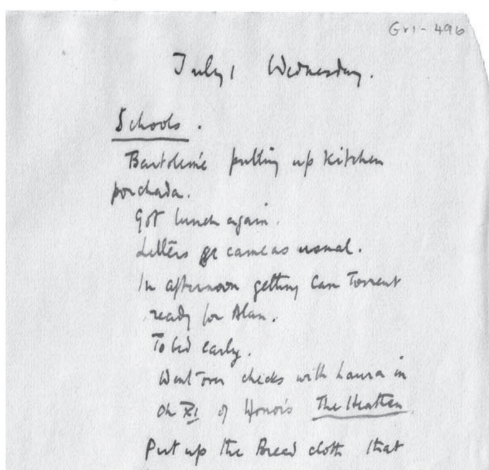 Gr1-496
July 1 Wednesday.
Schools.
Bartolomé putting up kitchen
porchada.
Got lunch again.
Letters came as usual.
In afternoon getting Can Torrent
ready for Alan.
To bed early.
Went over checks with Laura in
Ch XI of Honor's The Heathen
Put up the Bread cloth that